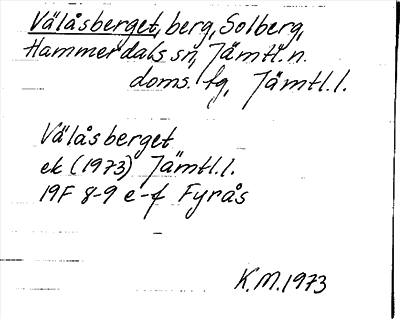 Välåsberget, berg, Solberg,
Hammerdals sn, Jämtl. n.
doms. fg, Jämtl.l.
Välåsberget
ek (1973) Jämtl.l.
19F 8-9 e-f Fyrås
K.M. 1973